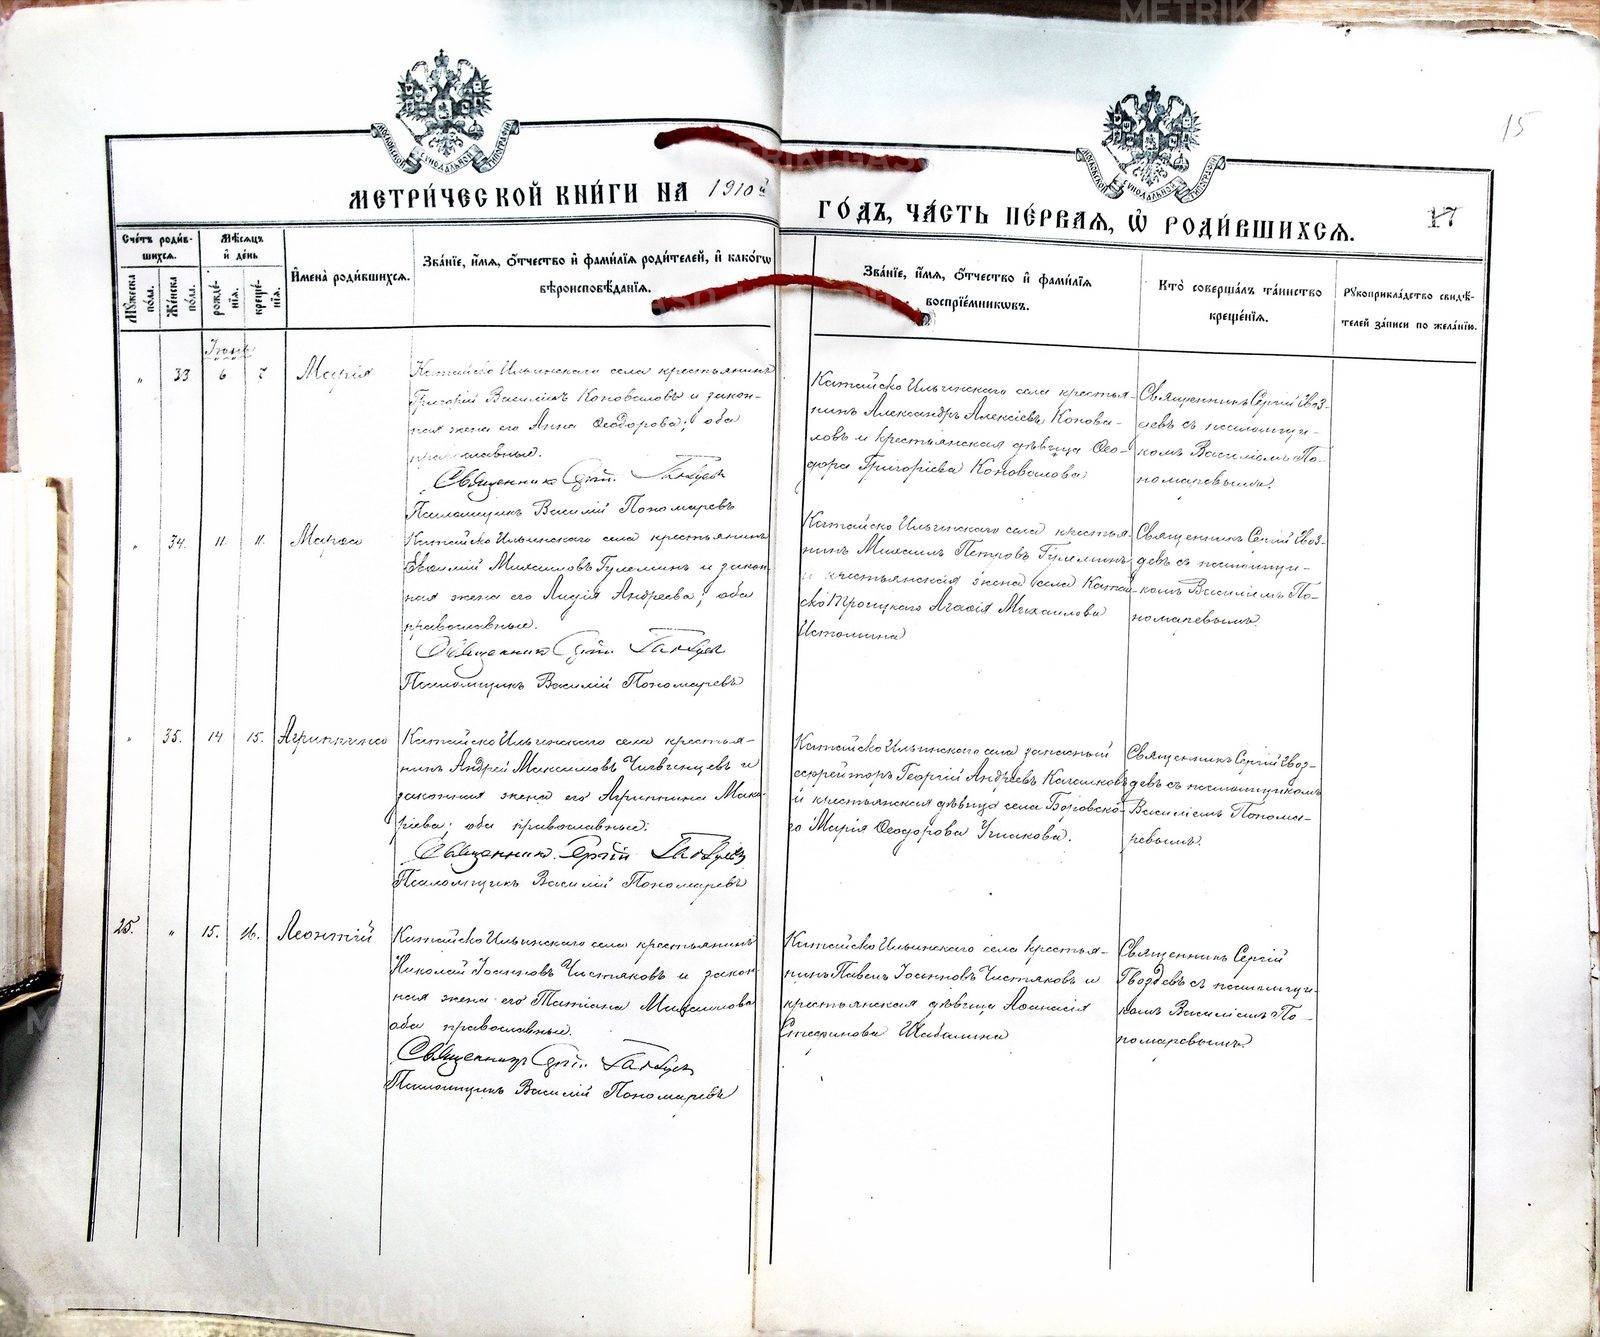 15
МОСКОВСКОЙ СѴНОДАЛЬНОЙ ТИПОГРАФІИ
МОСКОВСКОЙ СѴНОДАЛЬНОЙ ТИПОГРАФІИ
МЕТРИ́ЧЕСКОЙ КНИ́ГИ НА 1910й
ГО́ДЪ, ЧА́СТЬ ПЕ́РВАЯ, Ѡ РОДИ́ВШИХСЯ.
17
Сче́тъ роди́в-
шихся.
Мꙋжеска по́ла.
Же́нска по́ла.
Мѣ́сяцъ
и де́нь
рожде́-
нія.
креще́-
нія.
Имена̀ роди́вшихся.
Зва́ніе, и́мя, о́тчество и фами́лія роди́телей, и како́гѡ
вѣроисповѣ́данія.
Зва́ніе, и́мя, о́тчество и фами́лія
воспріе́мникѡвъ.
Кто̀ соверша́лъ та́инство
креще́нія.
Рꙋкоприкла́дство свидѣ́-
телей за́писи по жела́нію.
Іюнь
" 33 6 7 Марія
Катайско Ильинскаго села крестьянинъ
Григорій Васильевъ Коноваловъ и закон-
ная жена его Анна Ѳеодорова; оба
православные.
Священникъ Сергій Гвоздевъ
Псаломщикъ Василій Пономаревъ
Катайско Ильинскаго села крестья-
нинъ Александръ Алексіевъ Конова-
ловъ и крестьянская дѣвица Ѳео-
дора Григоріева Коновалова
Священникъ Сергій Гвоз-
девъ съ псаломщи-
комъ Василіемъ По-
номаревымъ.
" 34. 11. 11. Марѳа
Катайско Ильинскаго села крестьянинъ
Василій Михаиловъ Гулеминъ и закон-
ная жена его Лидія Андреева; оба
православные.
Священникъ Сергій Гвоздевъ
Псаломщикъ Василій Пономаревъ
Катайско Ильинскаго села крестья-
нинъ Михаилъ Петровъ Гулеминъ
и крестьянская жена села Катай-
ско Троицкаго Агафія Михаилова
Истомина
Священникъ Сергій Гвоз-
девъ съ псаломщи-
комъ Василіемъ По-
номаревымъ.
" 35. 14 15. Агриппина
Катайско Ильинскаго села крестья-
нинъ Андрей Максимовъ и
законная жена его Агриппина Мака-
ріева; оба православные.
Священникъ Сергій Гвоздевъ
Псаломщикъ Василій Пономаревъ
Катайско Ильинскаго села запасный
ефрейторъ Георгій Андреевъ
и крестьянская дѣвица села Боровско-
го Марія Ѳеодорова Ушакова.
Священникъ Сергій Гвоз-
девъ съ псаломщикомъ
Василіемъ Понома-
ревымъ.
25. " 15. 16. Леонтій
Катайско Ильинскаго села крестьянинъ
Николай Іоанновъ Чистяковъ и закон-
ная жена его Татіана Михаилова
оба православные.
Священникъ Сергій Гвоздевъ
Псаломщикъ Василій Пономаревъ
Катайско Ильинскаго села крестья-
нинъ Павелъ Іоанновъ Чистяковъ и
крестьянская дѣвица Аѳанасія
Стефанова Шабалина
Священникъ Сергій
Гвоздевъ съ псаломщи-
комъ Василіемъ По-
номаревымъ.